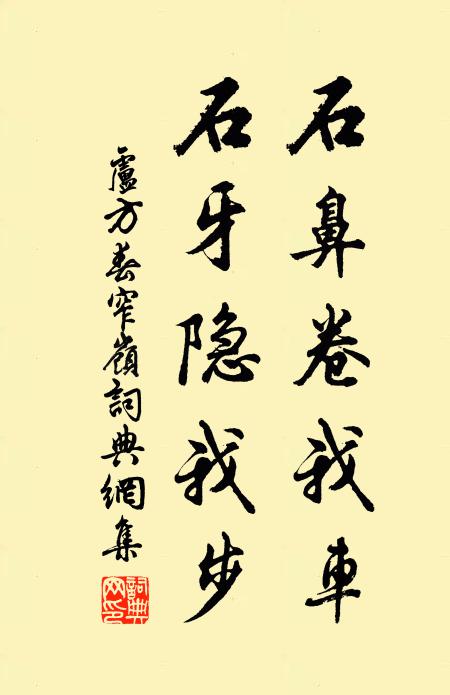 石鼻卷我車
石牙隐我步
盧方春窄嶺詞典網集
詞典網印